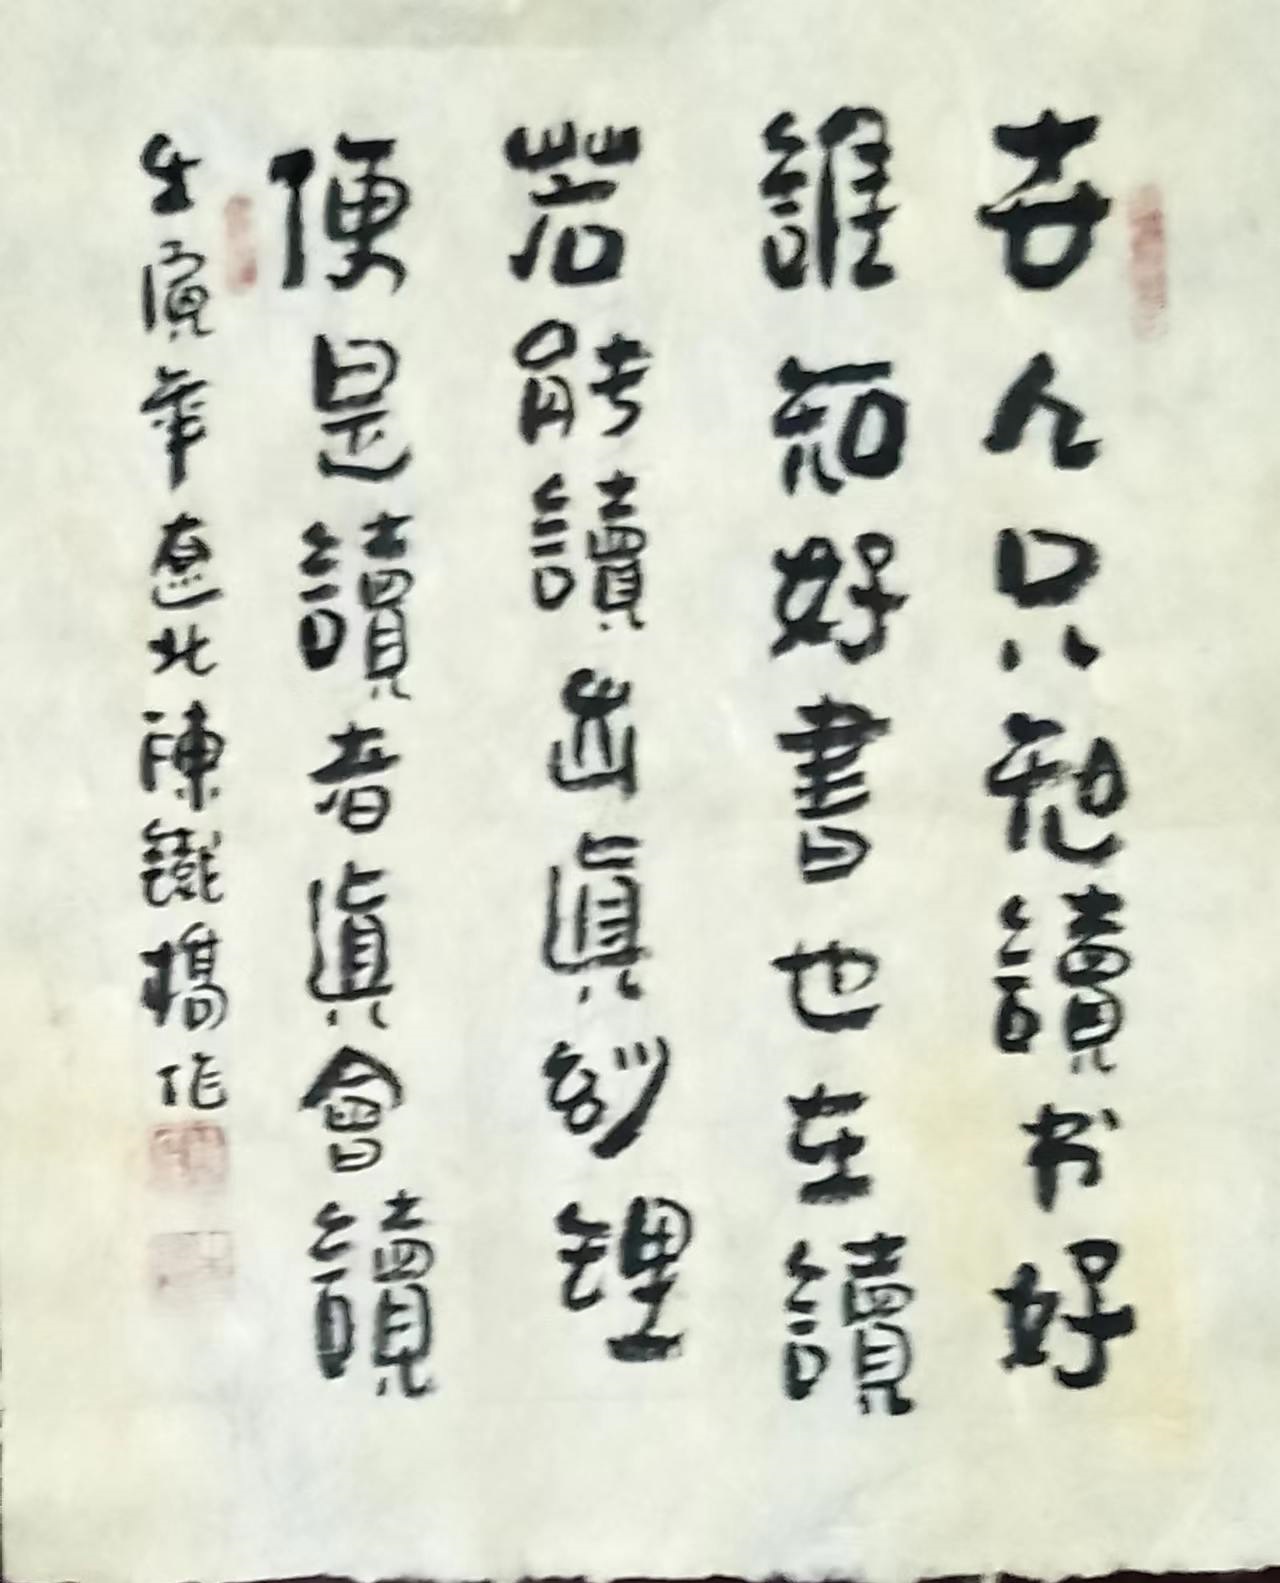 世人只讀书好
誰知好書也在讀
若能讀出真妙理
便是讀者真會讀
壬寅年遼北陳鐵橋作